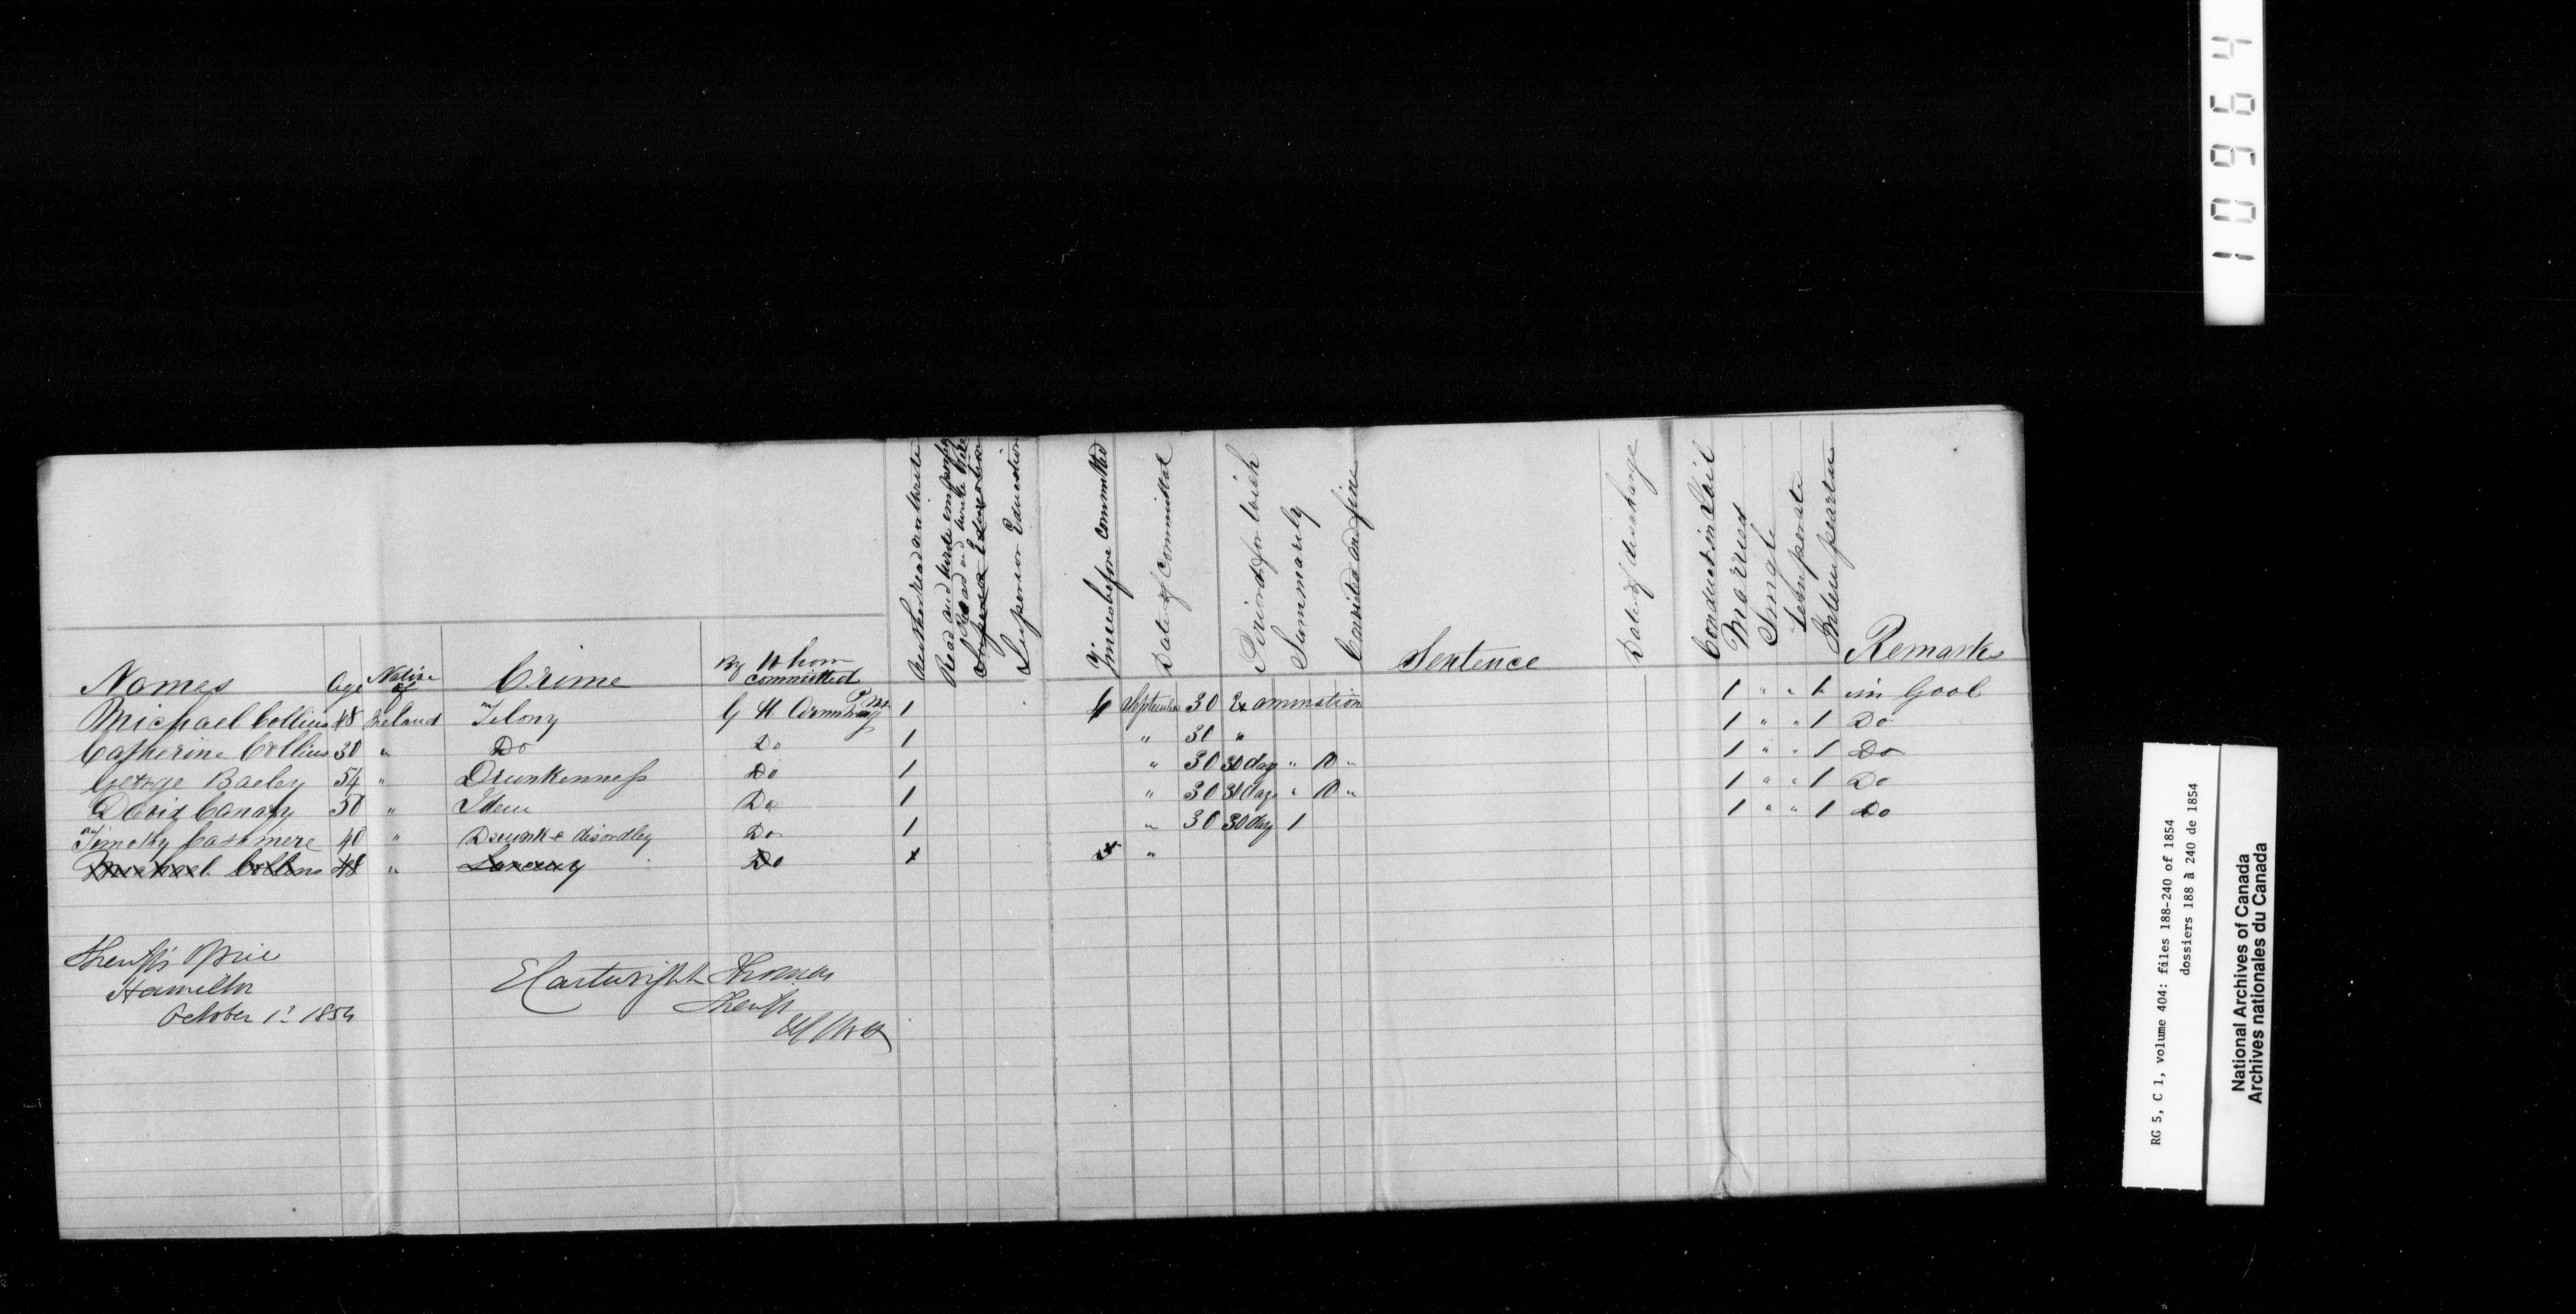 Names Age Native of Crime By Whom committed Neither read or write Read and write imperfectly Read and write Superior Education Superior Education Times before Committed Date of Committal Period for which Summarily Convicted and fine Sentence Date of discharge Conduct in Jail Married Single Temperate Intemperate Remarks
Michael Collins 48 Ireland Felony G H Armstrong P M 1 6 September 30 Examination 1 " " 1 in Gaol
Catherine Collins 30 " Do Do 1 " 30 " 1 " " 1 Do
George Baeley 54 " Drunkenness Do 1 " 30 30 day " 10 " 1 " " 1 Do
David Canary 50 " Idem Do 1 " 30 30 days " 10 " 1 " " 1 Do
Timothy Cashmere 40 " Drunk & disordley Do 1 " 30 30 day 1 1 " " 1 Do
Michael Collins 48 " Larceny Do "
Sheriff's Office
Hamilton
October 1st 1854
E Cartwright Thomas
Sheriff
10964
RG 5, C 1, volume 404: files 188-240 of 1854
dossiers 188 à 240 de 1854
National Archives of Canada
Archives nationales du Canada